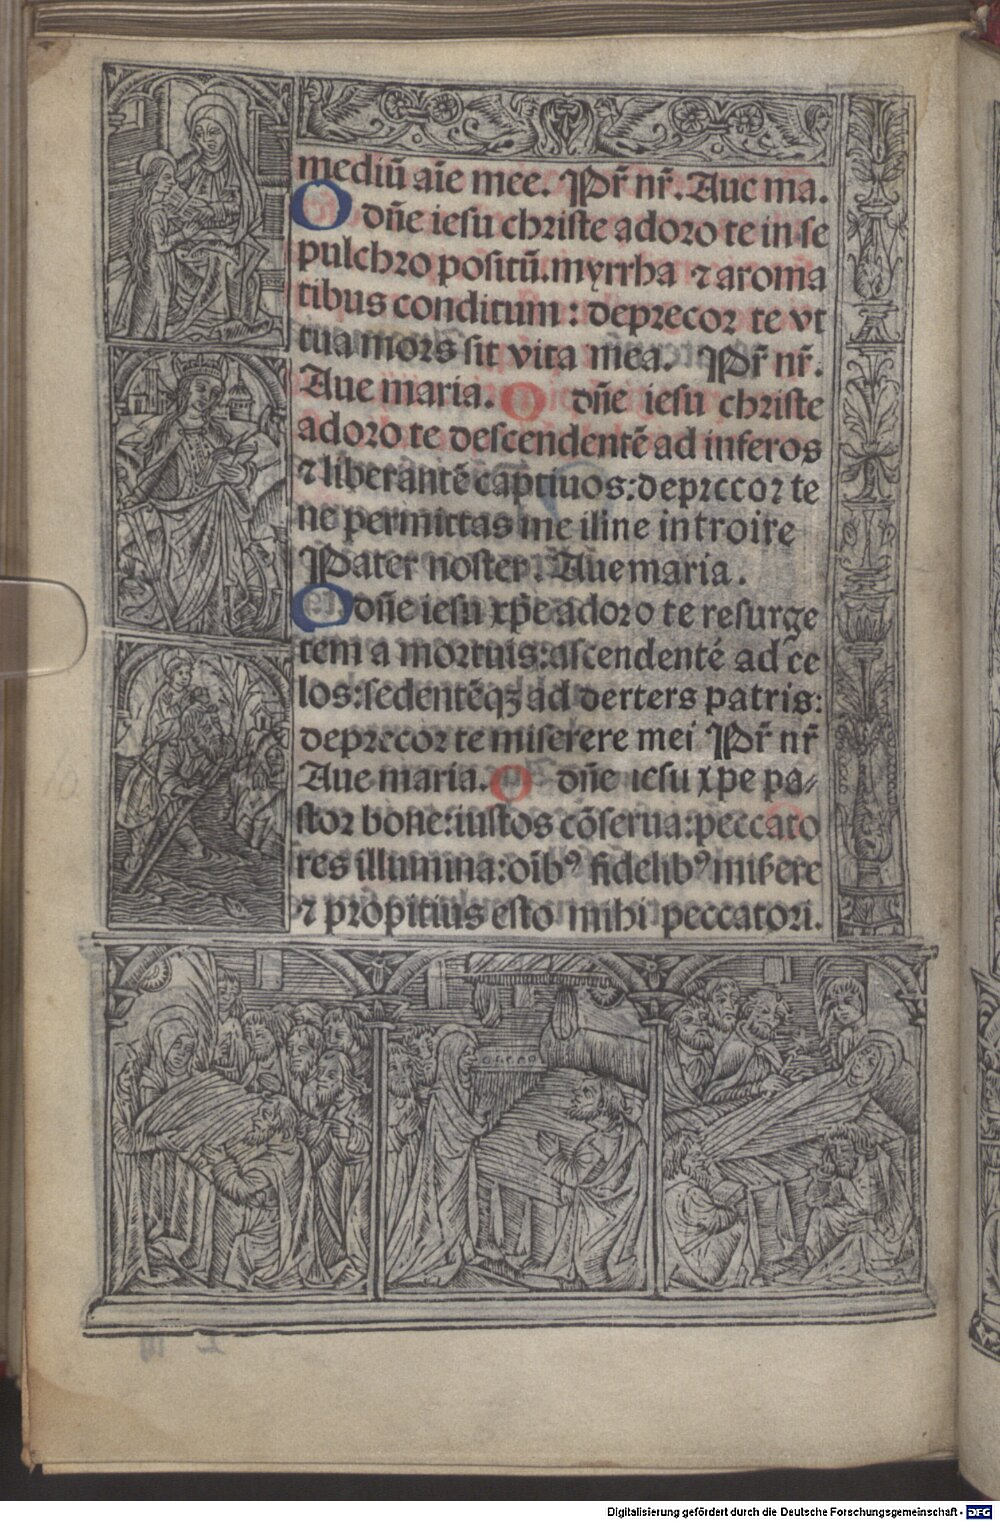 mediũ aĩe mee. Pr̃ nr̃. Aue ma.
O dñe iesu christe adoro te in se
pulchro positũ. myrrha ⁊ aroma
tibus conditum: deprecor te vt
tua mors sit vita mea. Pr̃ nr̃.
Aue maria. O dñe iesu christe
adoro te descendentẽ ad inferos
⁊ liberantẽ captiuos: deprecor te
ne permittas me illine introire
Pater noster. Aue maria.
O dñe iesu xp̃e adoro te resurge
tem a mortuis: ascendentẽ ad ce
los: sedentẽqꝫ ad derters patris:
deprecor te miserere mei Pr̃ nr̃
Aue maria. O dñe iesu xpe pa/
stor bone: iustos cõserua: peccato
res illumina: oĩbꝰ fidelibꝰ miẞere
⁊ propitius esto mihi peccatori.
Digitalisierung gefördert durch die Deutsche Forschungsgemeinschaft - DFG